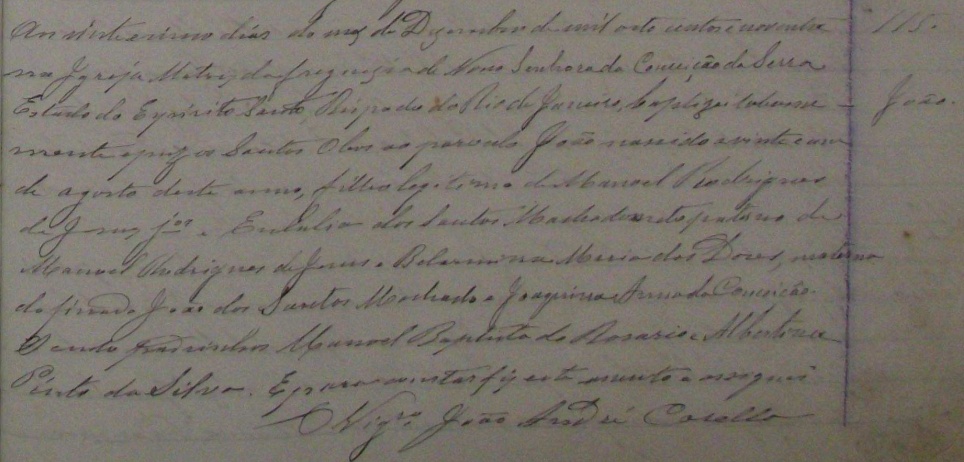 Aos vinte e cinco dias do mez de Dezembro de mil oito centos e noventa
na Igreja Matriz da freguezia de Nossa Senhora da Conceição da Serra
Estado do Espirito Santo, Bispado do Rio de Janeiro, baptizei solemne-
mente e puz os Santos Oleos ao parvulo João nascido a vinte e um
de agosto deste anno, filho legitimo de Manoel Rodrigues
de Jesus jor e Eulalia dos Santos Machado neto paterno de
Manoel Rodrigues de Jesus e Belarmina Maria das Dores, materno
do finado João dos Santos Machado e Joaquina Anna da Conceição.
Sendo padrinhos Manoel Baptista do Rosario e Albertina
Pinto da Silva. E para constar fiz este assento e assignei
O Vigro João André Casella
115.
João.